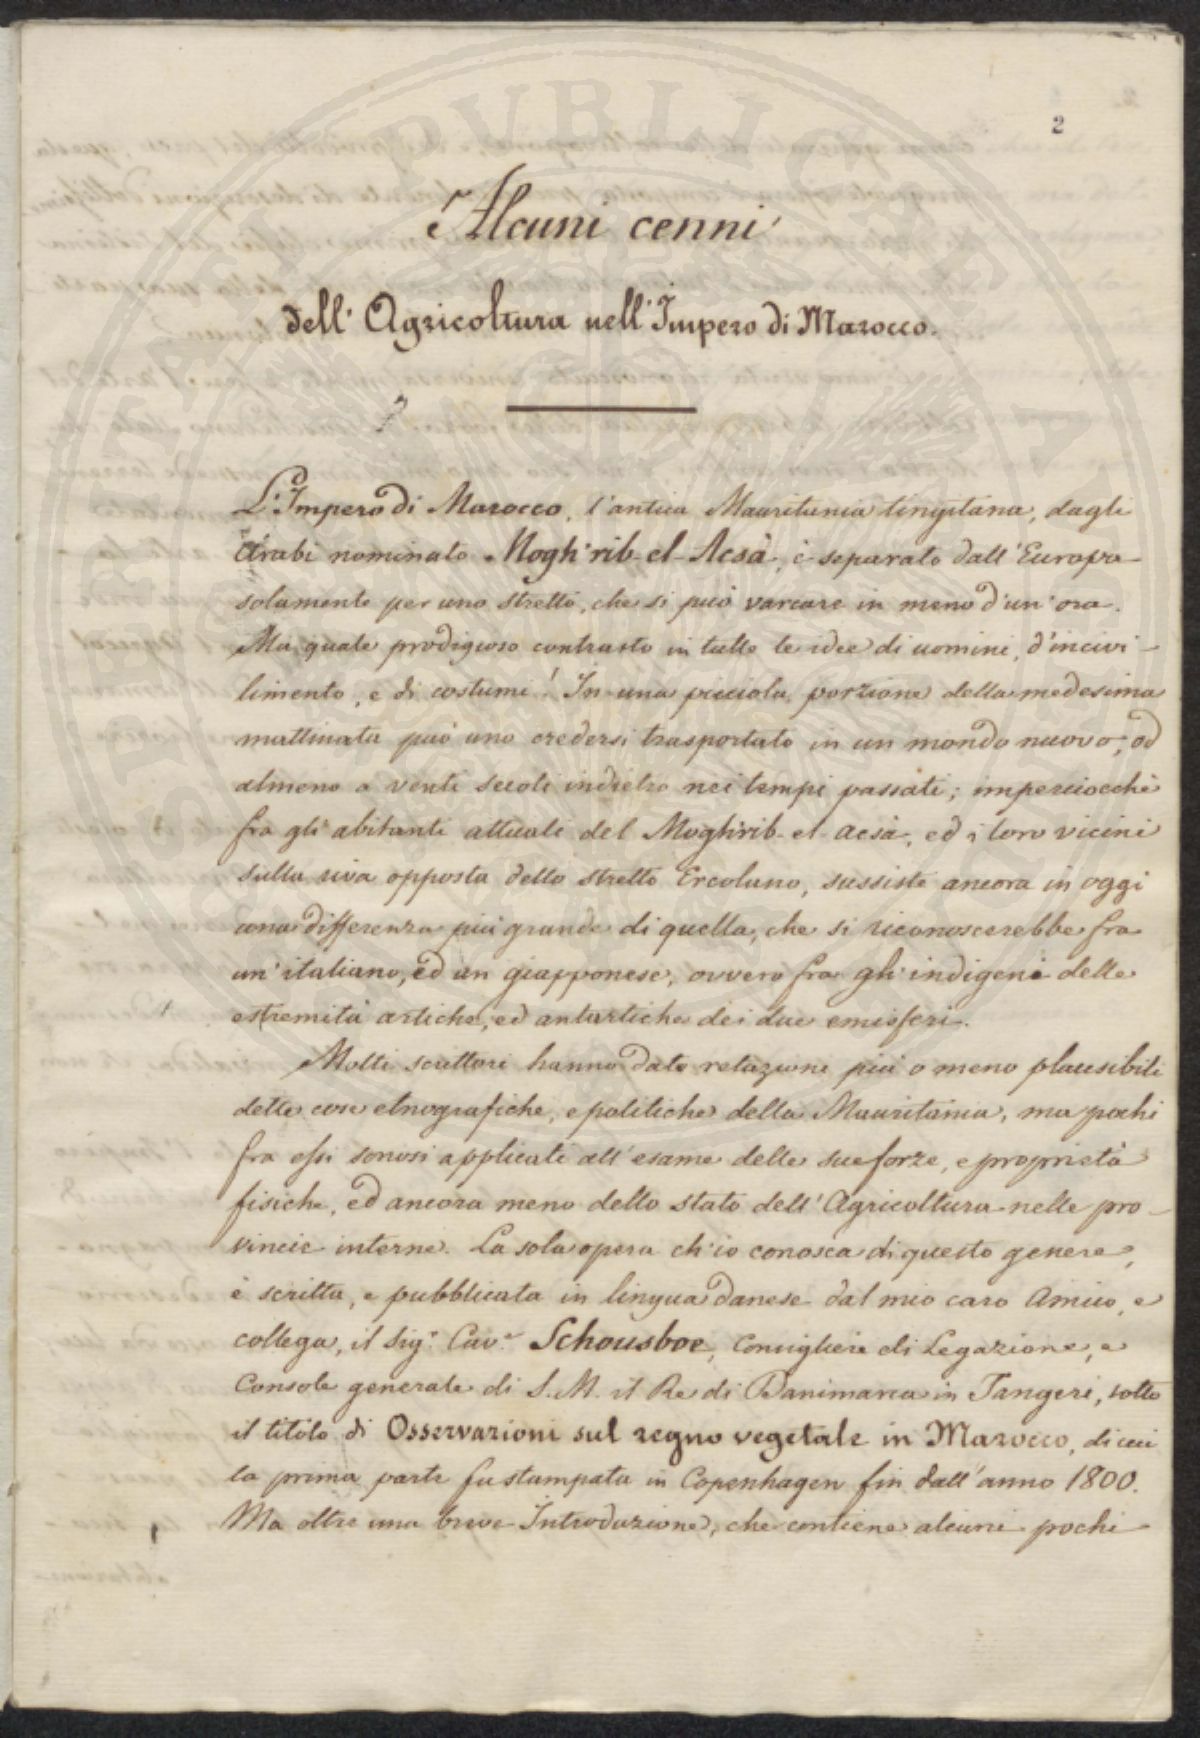 2
Alcuni cenni
dell' Agricoltura nell' Impero di Marocco.
L'Impero di Marocco, l'antica Mauritania tingitana, dagli
Arabi nominato Mogh'rib-el-Acsà, è separato dall'Europa
solamente per uno stretto, che si può varcare in meno d'un'ora.
Ma quale prodigioso contrasto in tutte le idee di uomini, d'incivi-
limento, e di costumi! In una picciola porzione della medesima
mattinata può uno credersi trasportato in un mondo nuovo, od
almeno a venti secoli indietro nei tempi passati; imperciocchè
fra gli abitanti attuali del Moghrib-el-acsà, ed i loro vicini
sulla riva opposta dello stretto Ercolano, sussiste ancora in oggi
una differenza più grande di quella, che si riconoscerebbe fra
un'italiano, ed un giapponese, ovvero fra gli indigeni delle
estremità artiche, ed antartiche dei due emisferi.
Molti scrittori hanno dato relazioni più o meno plausibili
delle cose etnografiche, e politiche della Mauritania, ma pochi
fra essi sonosi applicati all'esame delle sue forze, e proprietà
fisiche, ed ancora meno dello stato dell'Agricoltura nelle pro-
vincie interne. La sola opera ch'io conosca di questo genere,
è scritta, e pubblicata in lingua danese dal mio caro Amico, e
collega, il Sig.r Cav.r Schousboe, Consigliere di Legazione, e
Console generale di S. M. il Re di Danimarca in Tangeri, sotto
il titolo di Osservazioni sul regno vegetale in Marocco, di cui
la prima parte fu stampata in Copenhagen fin dall'anno 1800.
Ma oltre una breve Introduzione, che contiene alcuni pochi